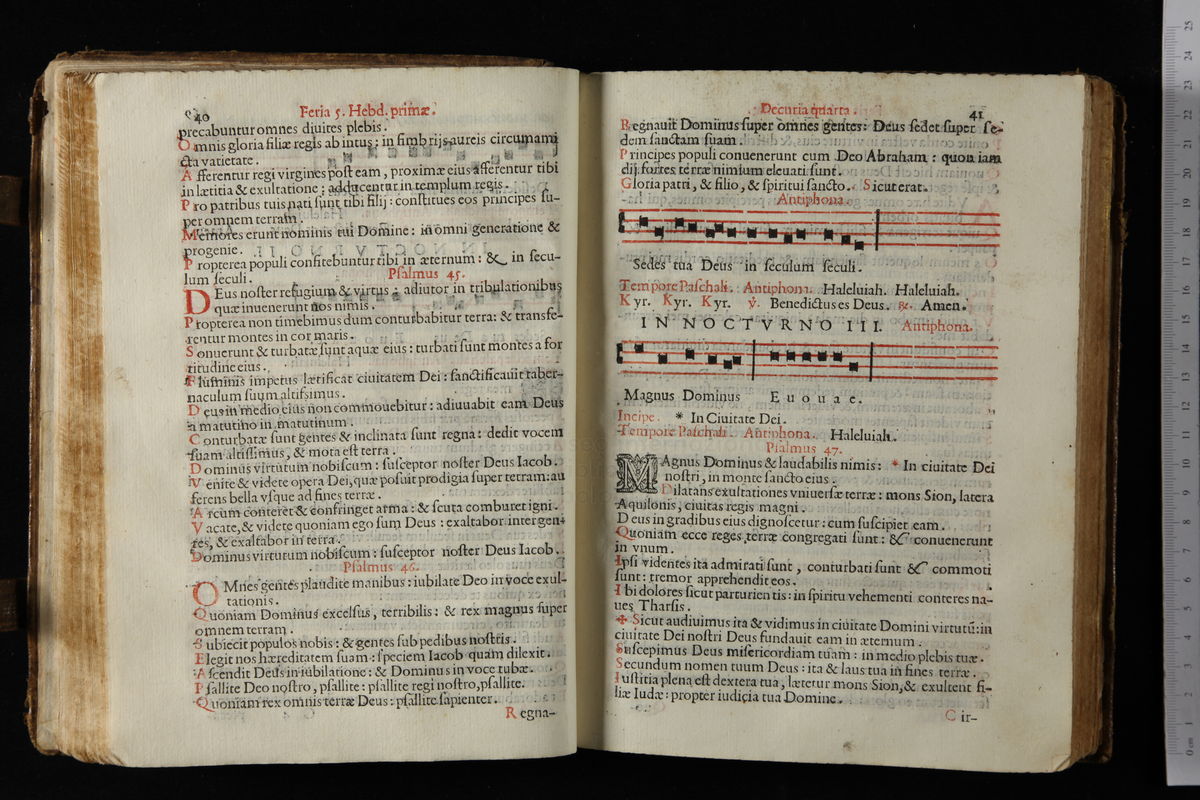 40 Feria 5. Hebd. primæ.
precabuntur omnes diuites plebis.
Omnis gloria filiæ regis ab intus: in fimbrijs aureis circumami
cta varietate.
Afferentur regi virgines post eam, proximæ eius afferentur tibi
in lætitia & exultatione: adducentur in templum regis.
Pro patribus tuis nati sunt tibi filij: constitues eos principes su-
per omnem terram.
Memores erunt nominis tui Domine: in omni generatione &
progenie.
Propterea populi confitebuntur tibi in æternum: & in secu-
lum seculi.
Psalmus 45.
DEus noster refugium & virtus: adiutor in tribulationibus
quæ inuenerunt nos nimis.
Propterea non timebimus dum conturbabitur terra: & transfe-
rentur montes in cor maris.
Sonuerunt & turbatæ sunt aquæ eius: turbati sunt montes a for
titudine eius.
Fluminis impetus lætificat ciuitatem Dei: sanctificauit taber-
naculum suum altissimus.
Deus in medio eius non commouebitur: adiuuabit eam Deus
a matutino in matutinum.
Conturbatæ sunt gentes & inclinata sunt regna: dedit vocem
suam altissimus, & mota est terra.
Dominus virtutum nobiscum: susceptor noster Deus Iacob.
Venite & videte opera Dei, quæ posuit prodigia super terram: au
ferens bella vsque ad fines terræ.
Arcum conteret & confringet arma: & scuta comburet igni.
Vacate, & videte quoniam ego sum Deus: exaltabor in gen-
tes, & exaltabor in terra.
Dominus virtutum nobiscum: susceptor noster Deus Iacob.
Psalmus 46.
OMnes gentes plaudite manibus: iubilate Deo in voce exul-
tationis.
Quoniam Dominus excelsus, terribilis: & rex magnus super
omnem terram.
Subiecit populos nobis: & gentes sub pedibus nostris.
Elegit nos hæreditatem suam: speciem Iacob quam dilexit.
Ascendit Deus in iubilatione: & Dominus in voce tubæ.
Psallite Deo nostro, psallite: psallite regi nostro, psallite.
Quoniam rex omnis terræ Deus: psallite sapienter.
Regna-
Decuria quarta. 41
Regnauit Dominus super omnes gentes: Deus sedet super se-
dem sanctam suam.
Principes populi conuenerunt cum Deo Abraham: quoniam
dij fortes terræ nimium eleuati sunt.
Gloria patri, & filio, & spiritui sancto. Sicut erat.
Antiphona.
Sedes tua Deus in seculum seculi.
Tempore Paschali. Antiphona. Haleluiah. Haleluiah.
Kyr. Kyr. Kyr. ℣. Benedictus es Deus. ℟. Amen.
IN NOCTVRNO III. Antiphona.
Magnus Dominus Euouae.
Incipe. * In Ciuitate Dei.
Tempore Paschali. Antiphona. Haleluiah.
Psalmus 47.
MAgnus Dominus & laudabilis nimis: * In ciuitate Dei
nostri, in monte sancto eius.
Dilatans exultationes vniuersæ terræ: mons Sion, latera
Aquilonis, ciuitas regis magni.
Deus in gradibus eius dignoscetur: cum suscipiet eam.
Quoniam ecce reges terræ congregati sunt: & conuenerunt
in vnum.
Ipsi videntes ita admirati sunt, conturbati sunt & commoti
sunt: tremor apprehendit eos.
Ibi dolores sicut parturientis: in spiritu vehementi conteres na-
ues Tharsis.
✠ Sicut audiuimus ita & vidimus in ciuitate Domini virtutū: in
ciuitate Dei nostri Deus fundauit eam in æternum.
Suscepimus Deus misericordiam tuam: in medio plebis tuæ.
Secundum nomen tuum Deus: ita & laus tua in fines terræ.
Iustitia plena est dextera tua, lætetur mons Sion, & exultent fi-
liæ Iudæ: propter iudicia tua Domine.
Cir-